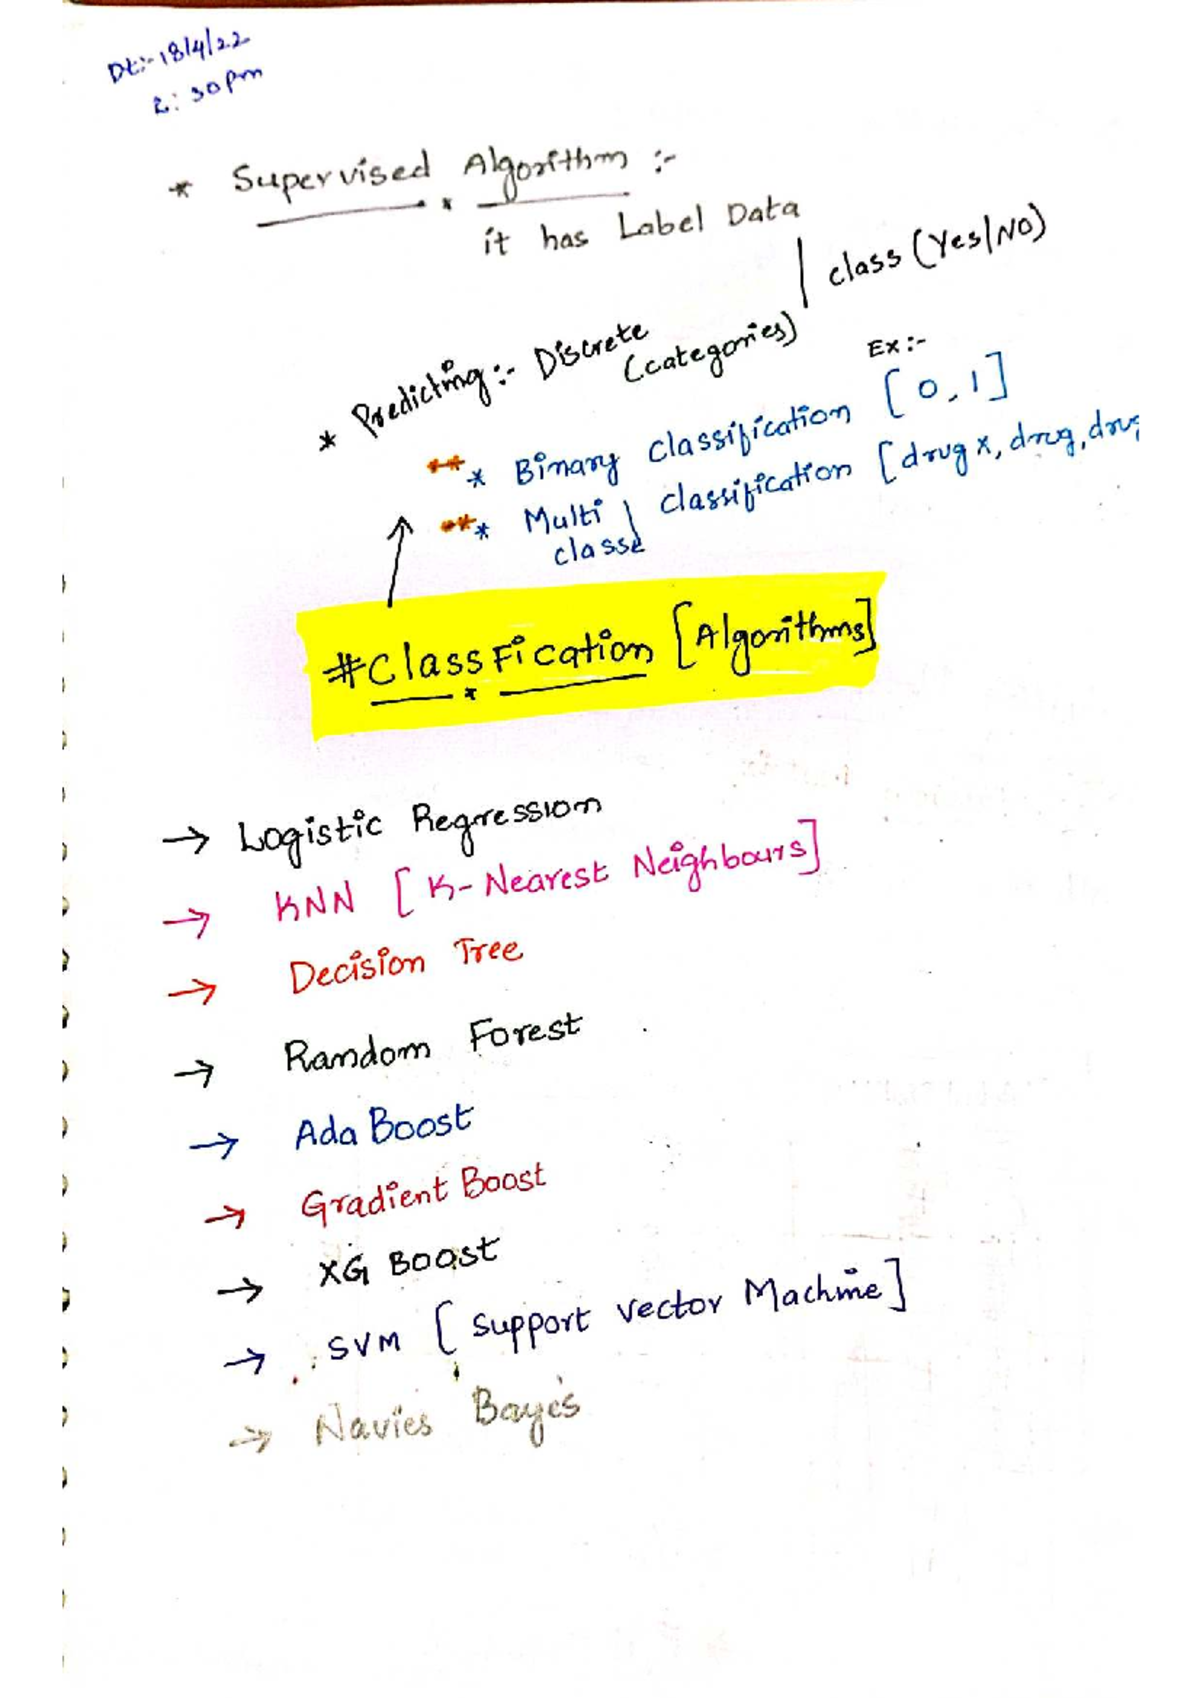 Dt:- 18/4/22
2:30pm
* Supervised Algorithm :-
it has Label Data
* Predicting:- Discrete (categories) | class (Yes/NO)
Ex:-
*** Binary classification [0,1]
*** Multi classification [drug x, drug, drug
classe
#ClassFication [Algorithms]
→ Logistic Regression
→ KNN [K-Nearest Neighbours]
→ Decision Tree
→ Random Forest
→ Ada Boost
→ Gradient Boost
→ XG Boost
→ SVM [Support Vector Machine]
→ Navies Bayes